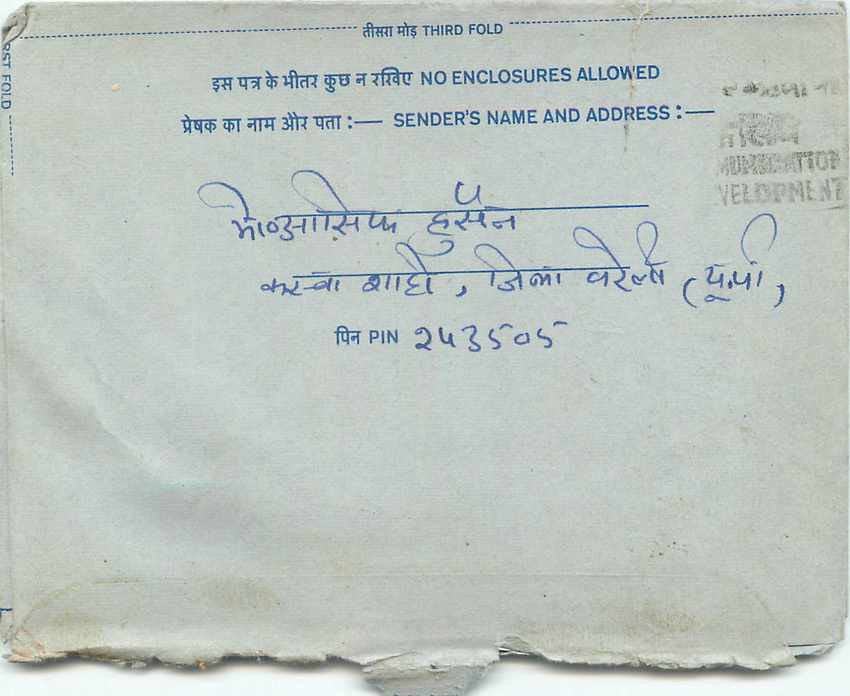 तीसरा मोड़ THIRD FOLD
RST FOLD
इस पत्र के भीतर कुछ न रखिए NO ENCLOSURES ALLOWED
प्रेषक का नाम और पता :— SENDER'S NAME AND ADDRESS :—
MUNICATION
VELOPMENT
मो० आसिफ हुसैन
कस्बा शाही, जिला बरेली (यू.पी)
पिन PIN 243505